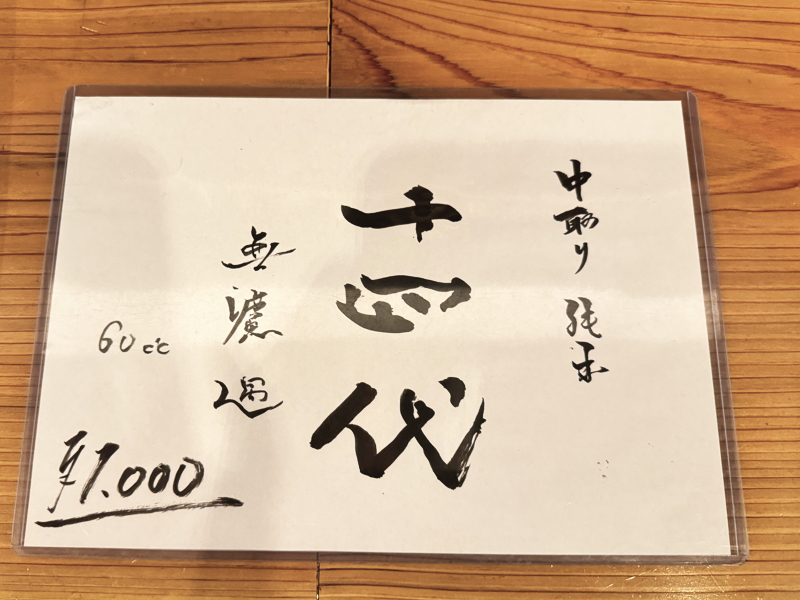 中取り 純米
十四代
無濾過
60cc
¥1.000